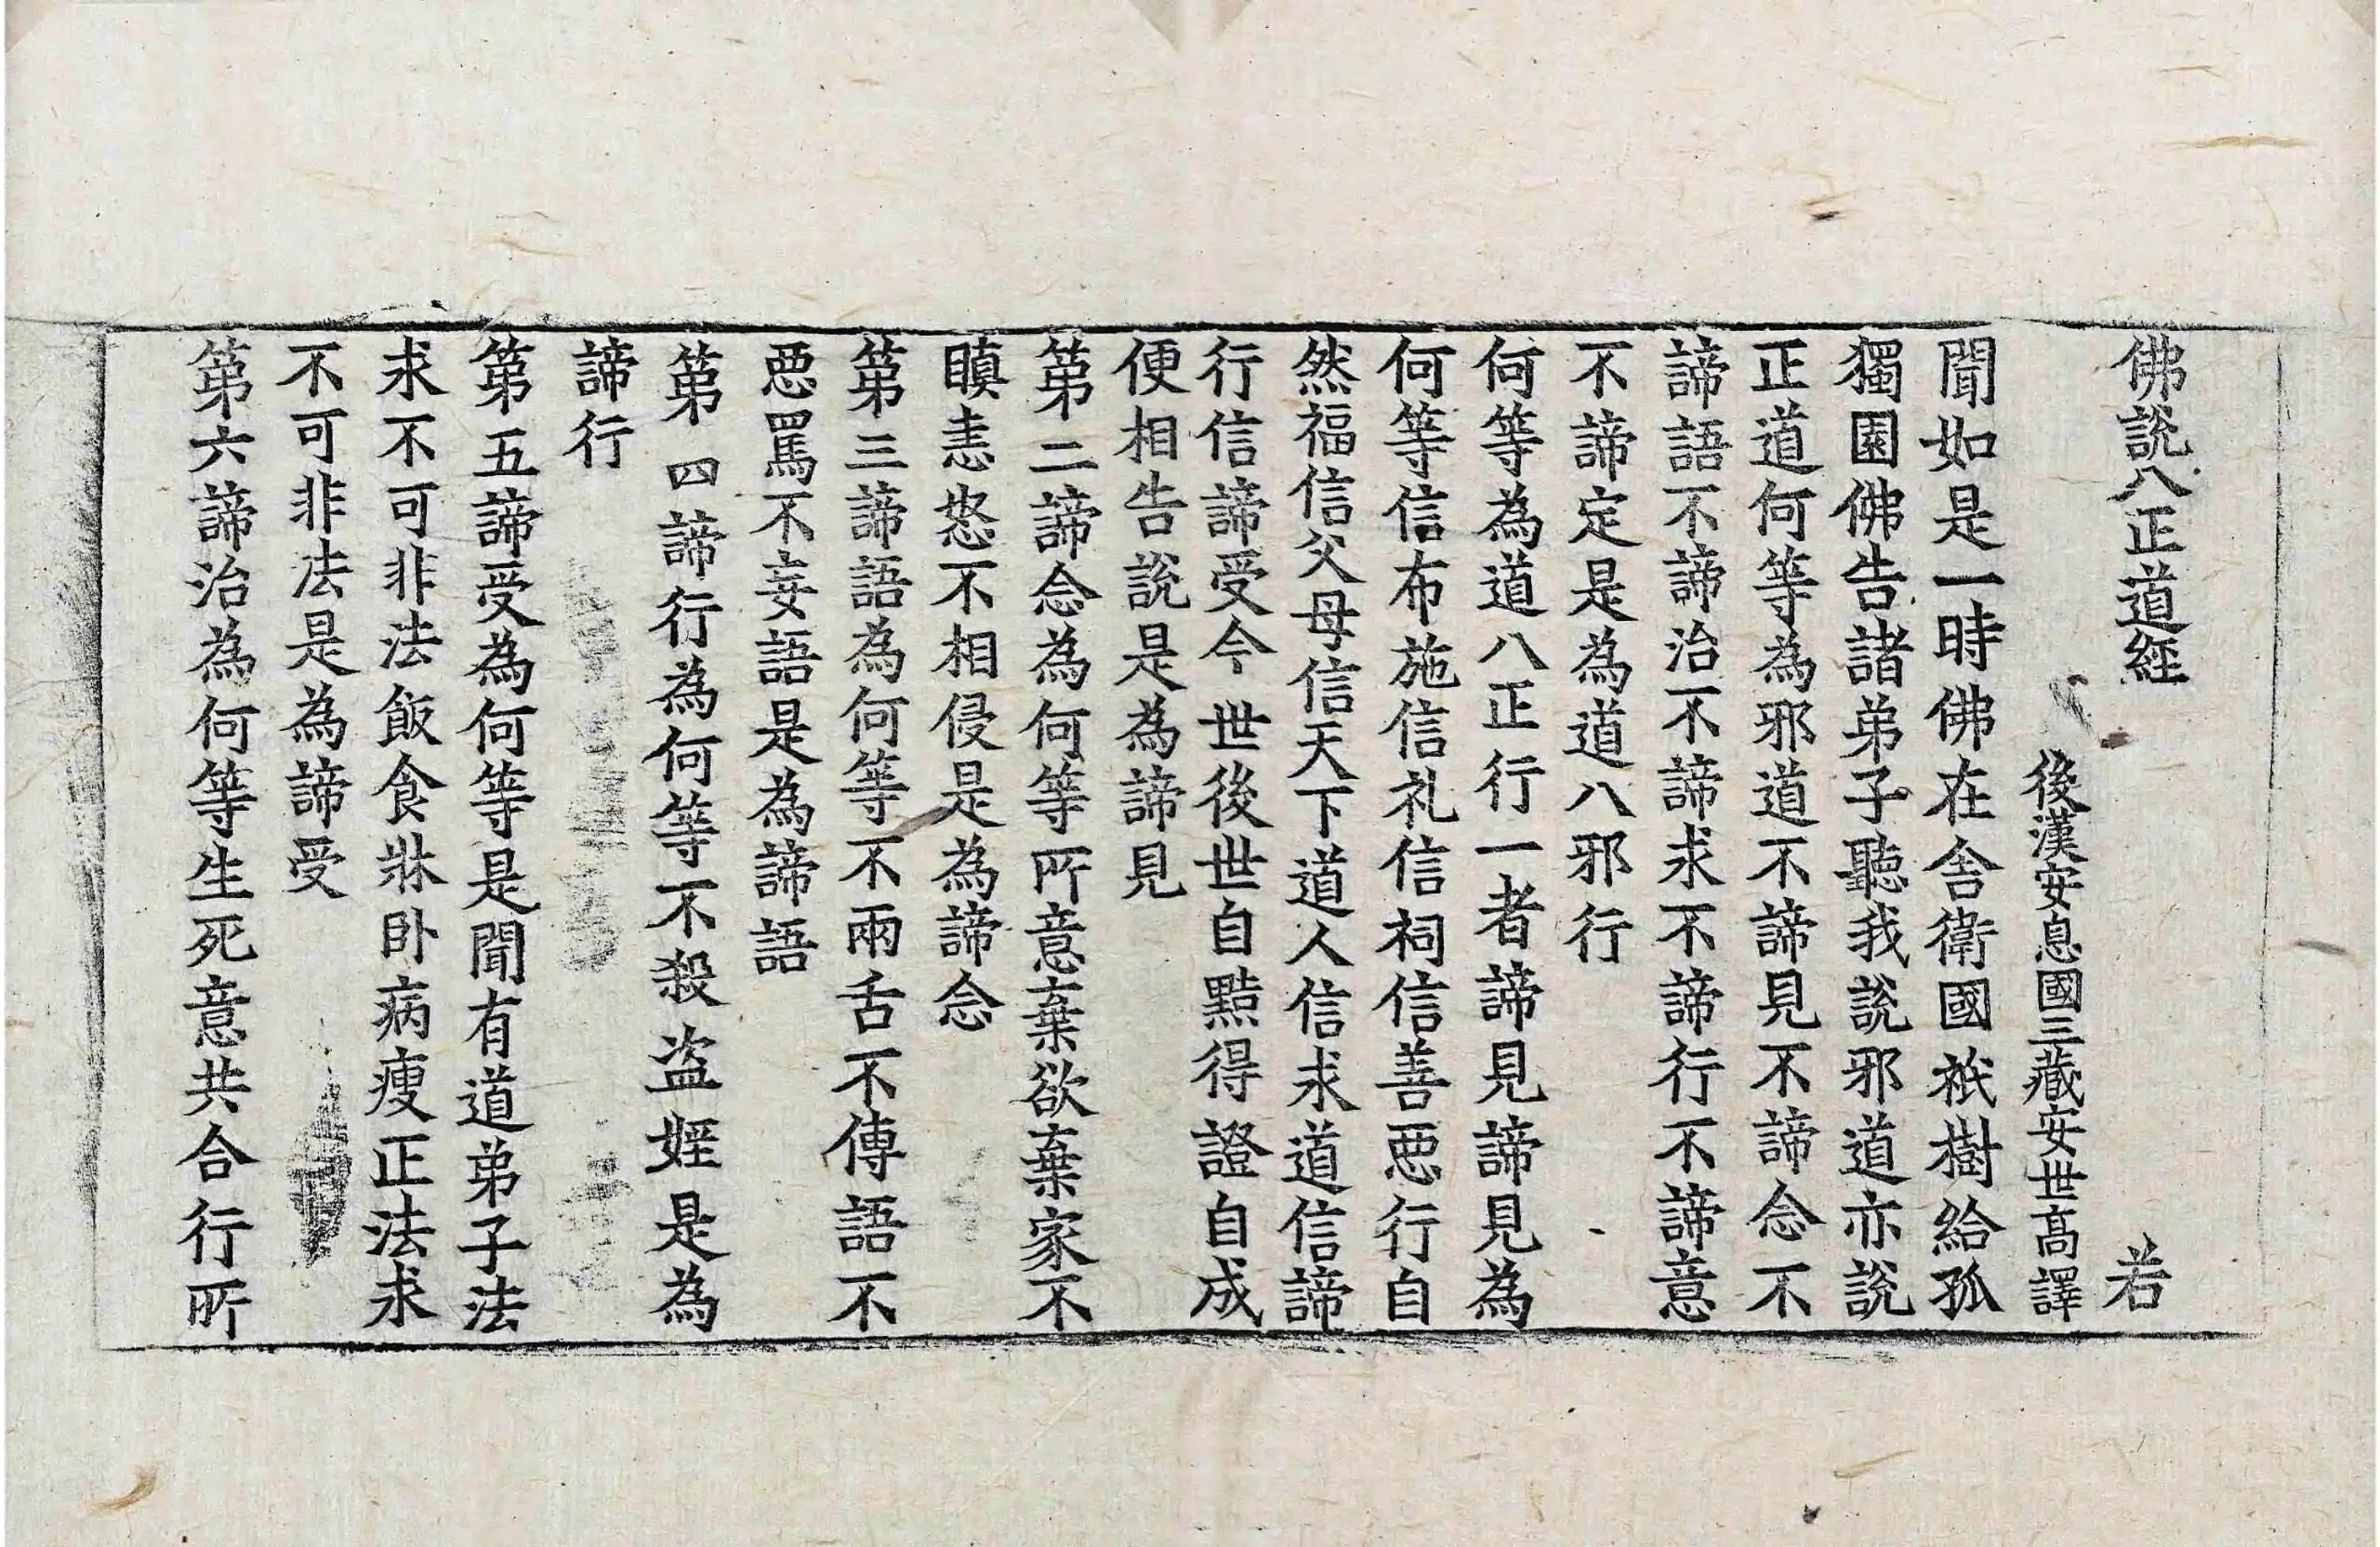 佛說八正道經 若
後漢安息國三藏安世高譯
聞如是一時佛在舍衛國祇樹給孤
獨園佛告諸弟子聽我說邪道亦說
正道何等為邪道不諦見不諦念不
諦語不諦治不諦求不諦行不諦意
不諦定是為道八邪行
何等為道八正行一者諦見諦見為
何等信布施信礼信祠信善惡行自
然福信父母信天下道人信求道信諦
行信諦受今世後世自黠得證自成
便相告說是為諦見
第二諦念為何等所意棄欲棄家不
瞋恚怒不相侵是為諦念
第三諦語為何等不兩舌不傳語不
惡罵不妄語是為諦語
第四諦行為何等不殺盗婬是為
諦行
第五諦受為何等是聞有道弟子法
求不可非法飯食牀卧病瘦正法求
不可非法是為諦受
第六諦治為何等生死意共合行所